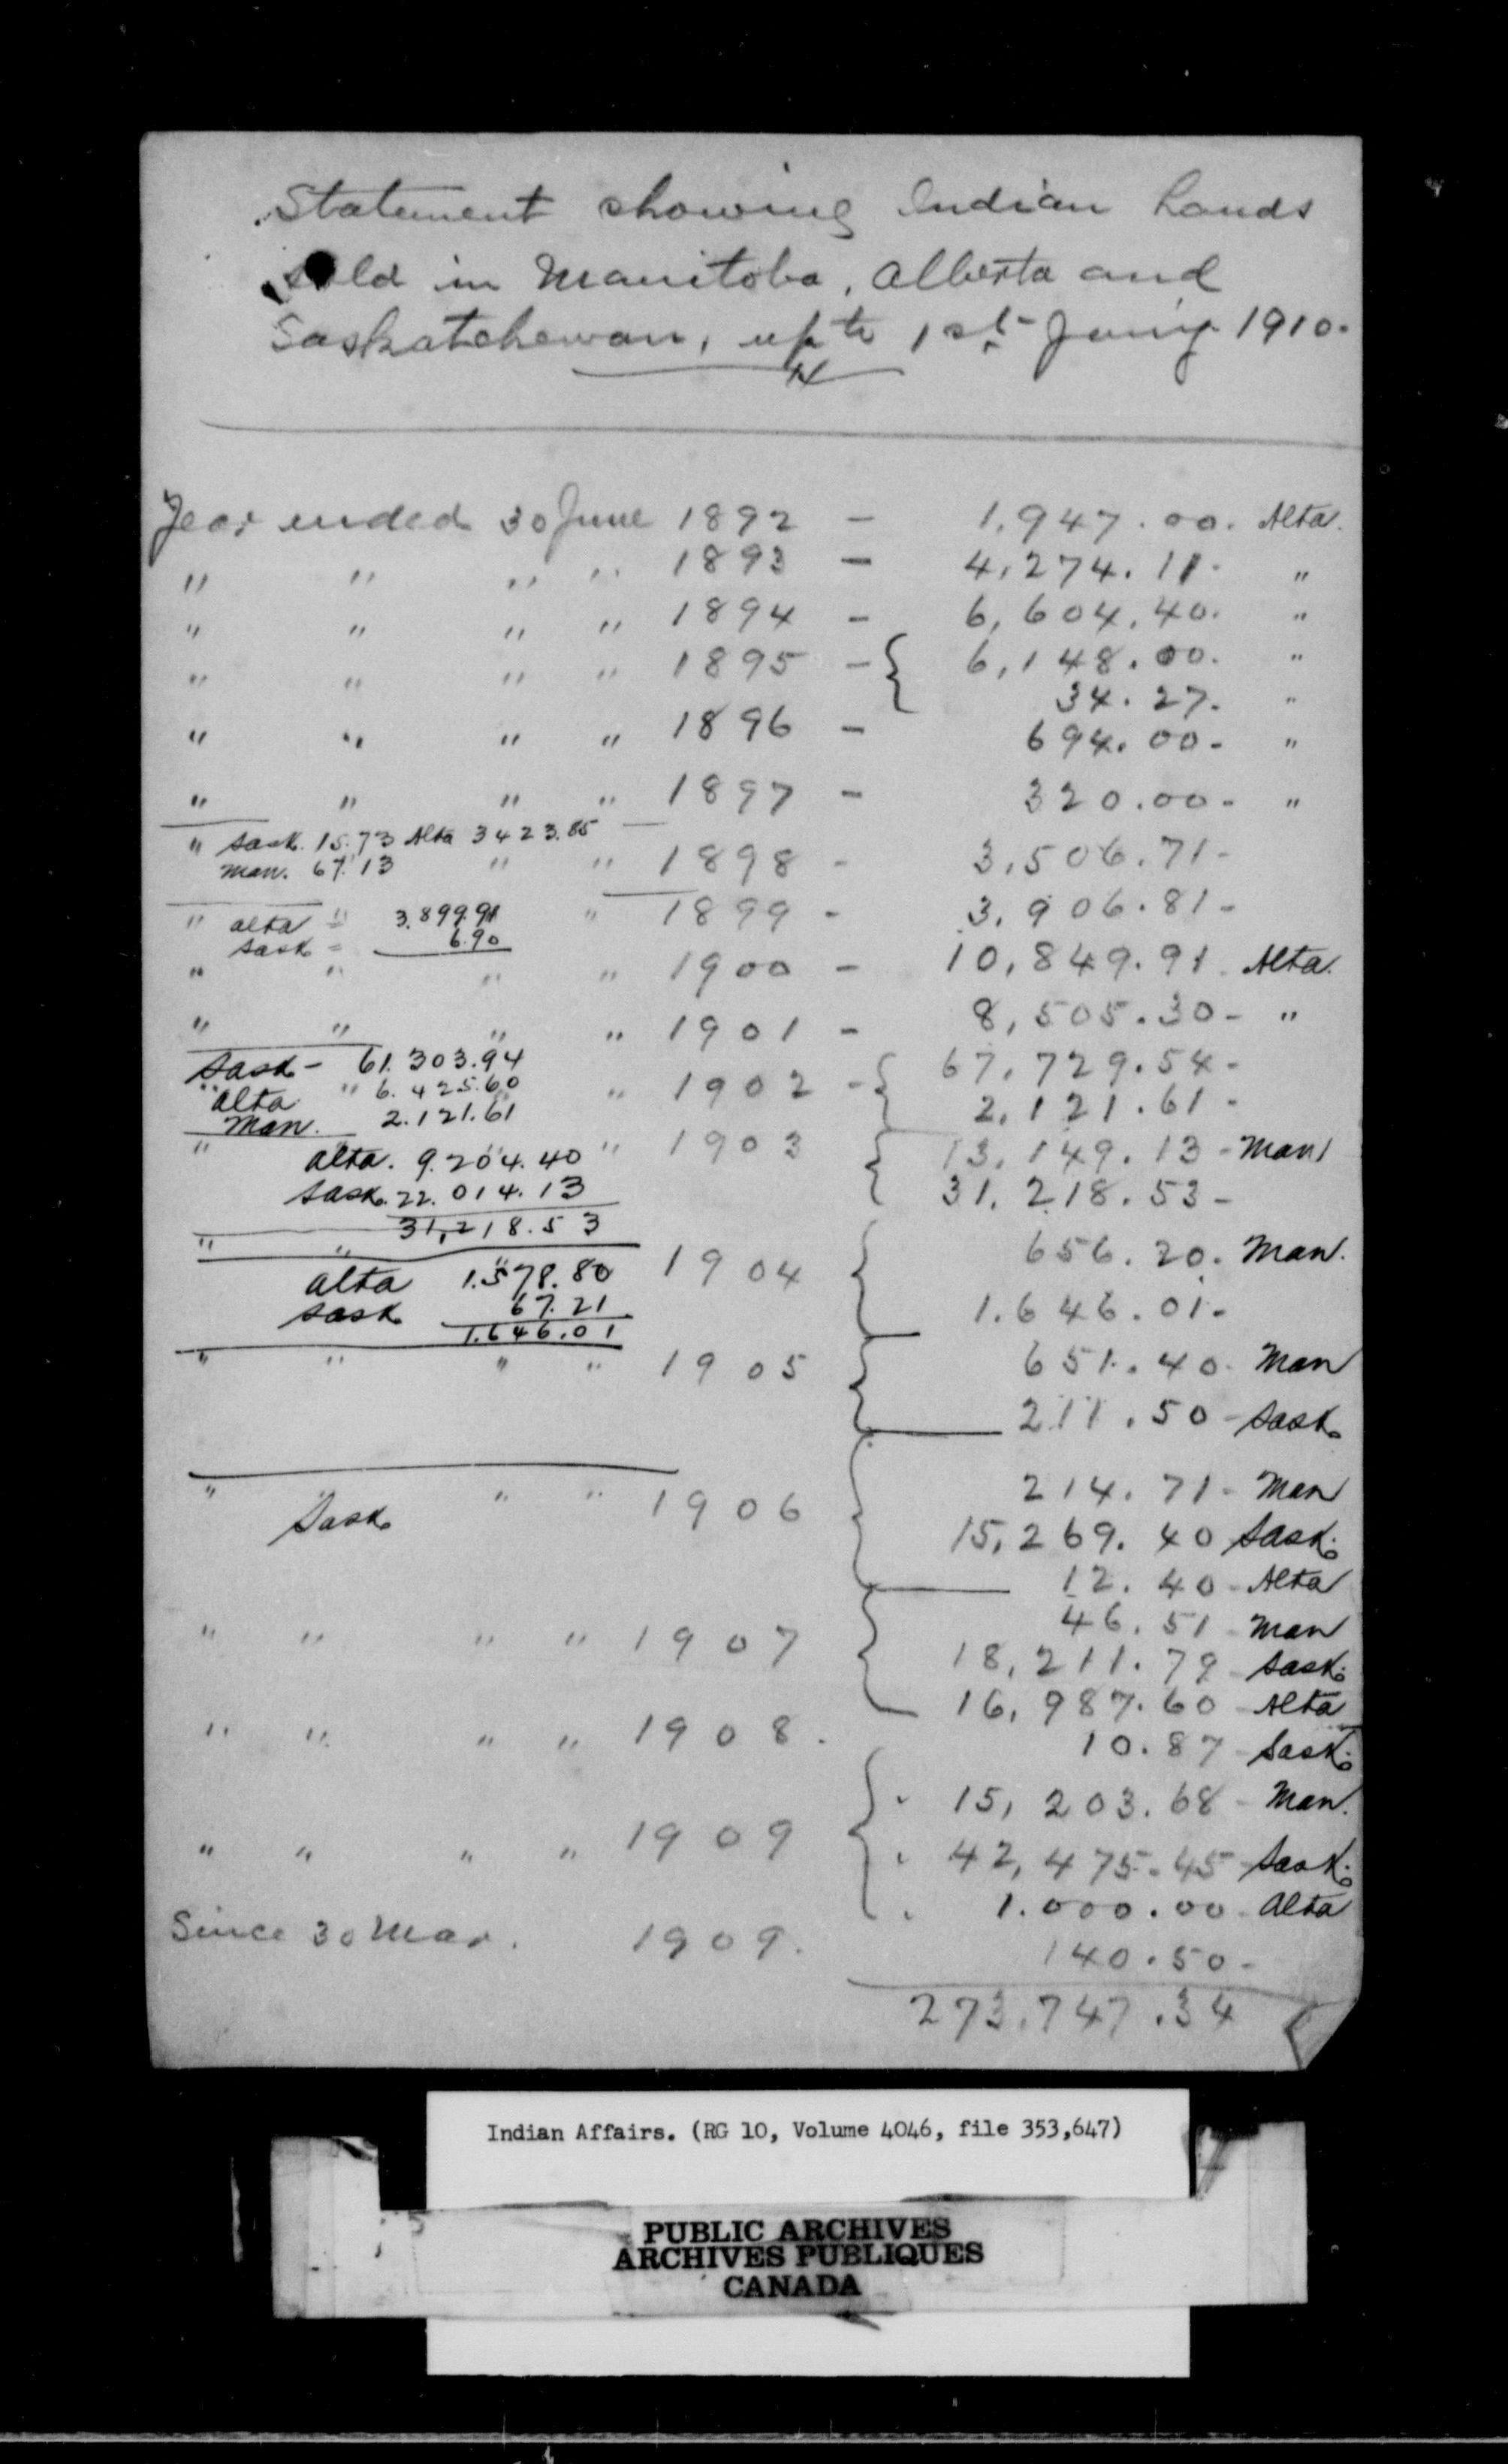 Statement showing Indian Lands
sold in Manitoba, Alberta and
Saskatchewan, up to 1st Jany 1910.
Year ended 30 June 1892 - 1,947.00. Alta.
" " " " 1893 - 4,274.11. "
" " " " 1894 - 6,604.40. "
" " " " 1895 - { 6,148.00. "
34.27. "
" " " " 1896 - 694.00 - "
" " " " 1897 - 320.00 - "
" Sask. 15.73 Alta 3423.85
Man. 67.13 " " 1898 - 3,506.71 -
" Alta " 3.899.91 " 1899 - 3,906.81 -
Sask - 6.90
" " " " 1900 - 10,849.91. Alta.
" " " " 1901 - 8,505.30 - "
Sask - 61.303.94 67,729.54 -
" Alta " 6.425.60 " 1902 - {
Man. 2.121.61 2,121.61 -
" Alta. 9.204.40 " 1903 { 13,149.13 - Man
Sask. 22.014.13 31.218.53 -
31,218.53
" " " 1904 { 656.20. Man.
Alta 1.578.80
Sask 67.21 1.646.01 -
1.646.01
" " " " 1905 { 651.40. Man
211.50 - Sask.
" " " 1906 { 214.71 - Man
Sask. 15,269.40 Sask.
12.40 - Alta
" " " " 1907 { 46.51 - Man
18,211.79 - Sask.
16,987.60 - Alta
" " " " 1908. 10.87 - Sask.
" " " " 1909 { 15,203.68 - Man.
42,475.45 - Sask.
1.000.00 - Alta
Since 30 Mar. 1909. 140.50 -
273,747.34
Indian Affairs. (RG 10, Volume 4046, file 353,647)
PUBLIC ARCHIVES
ARCHIVES PUBLIQUES
CANADA